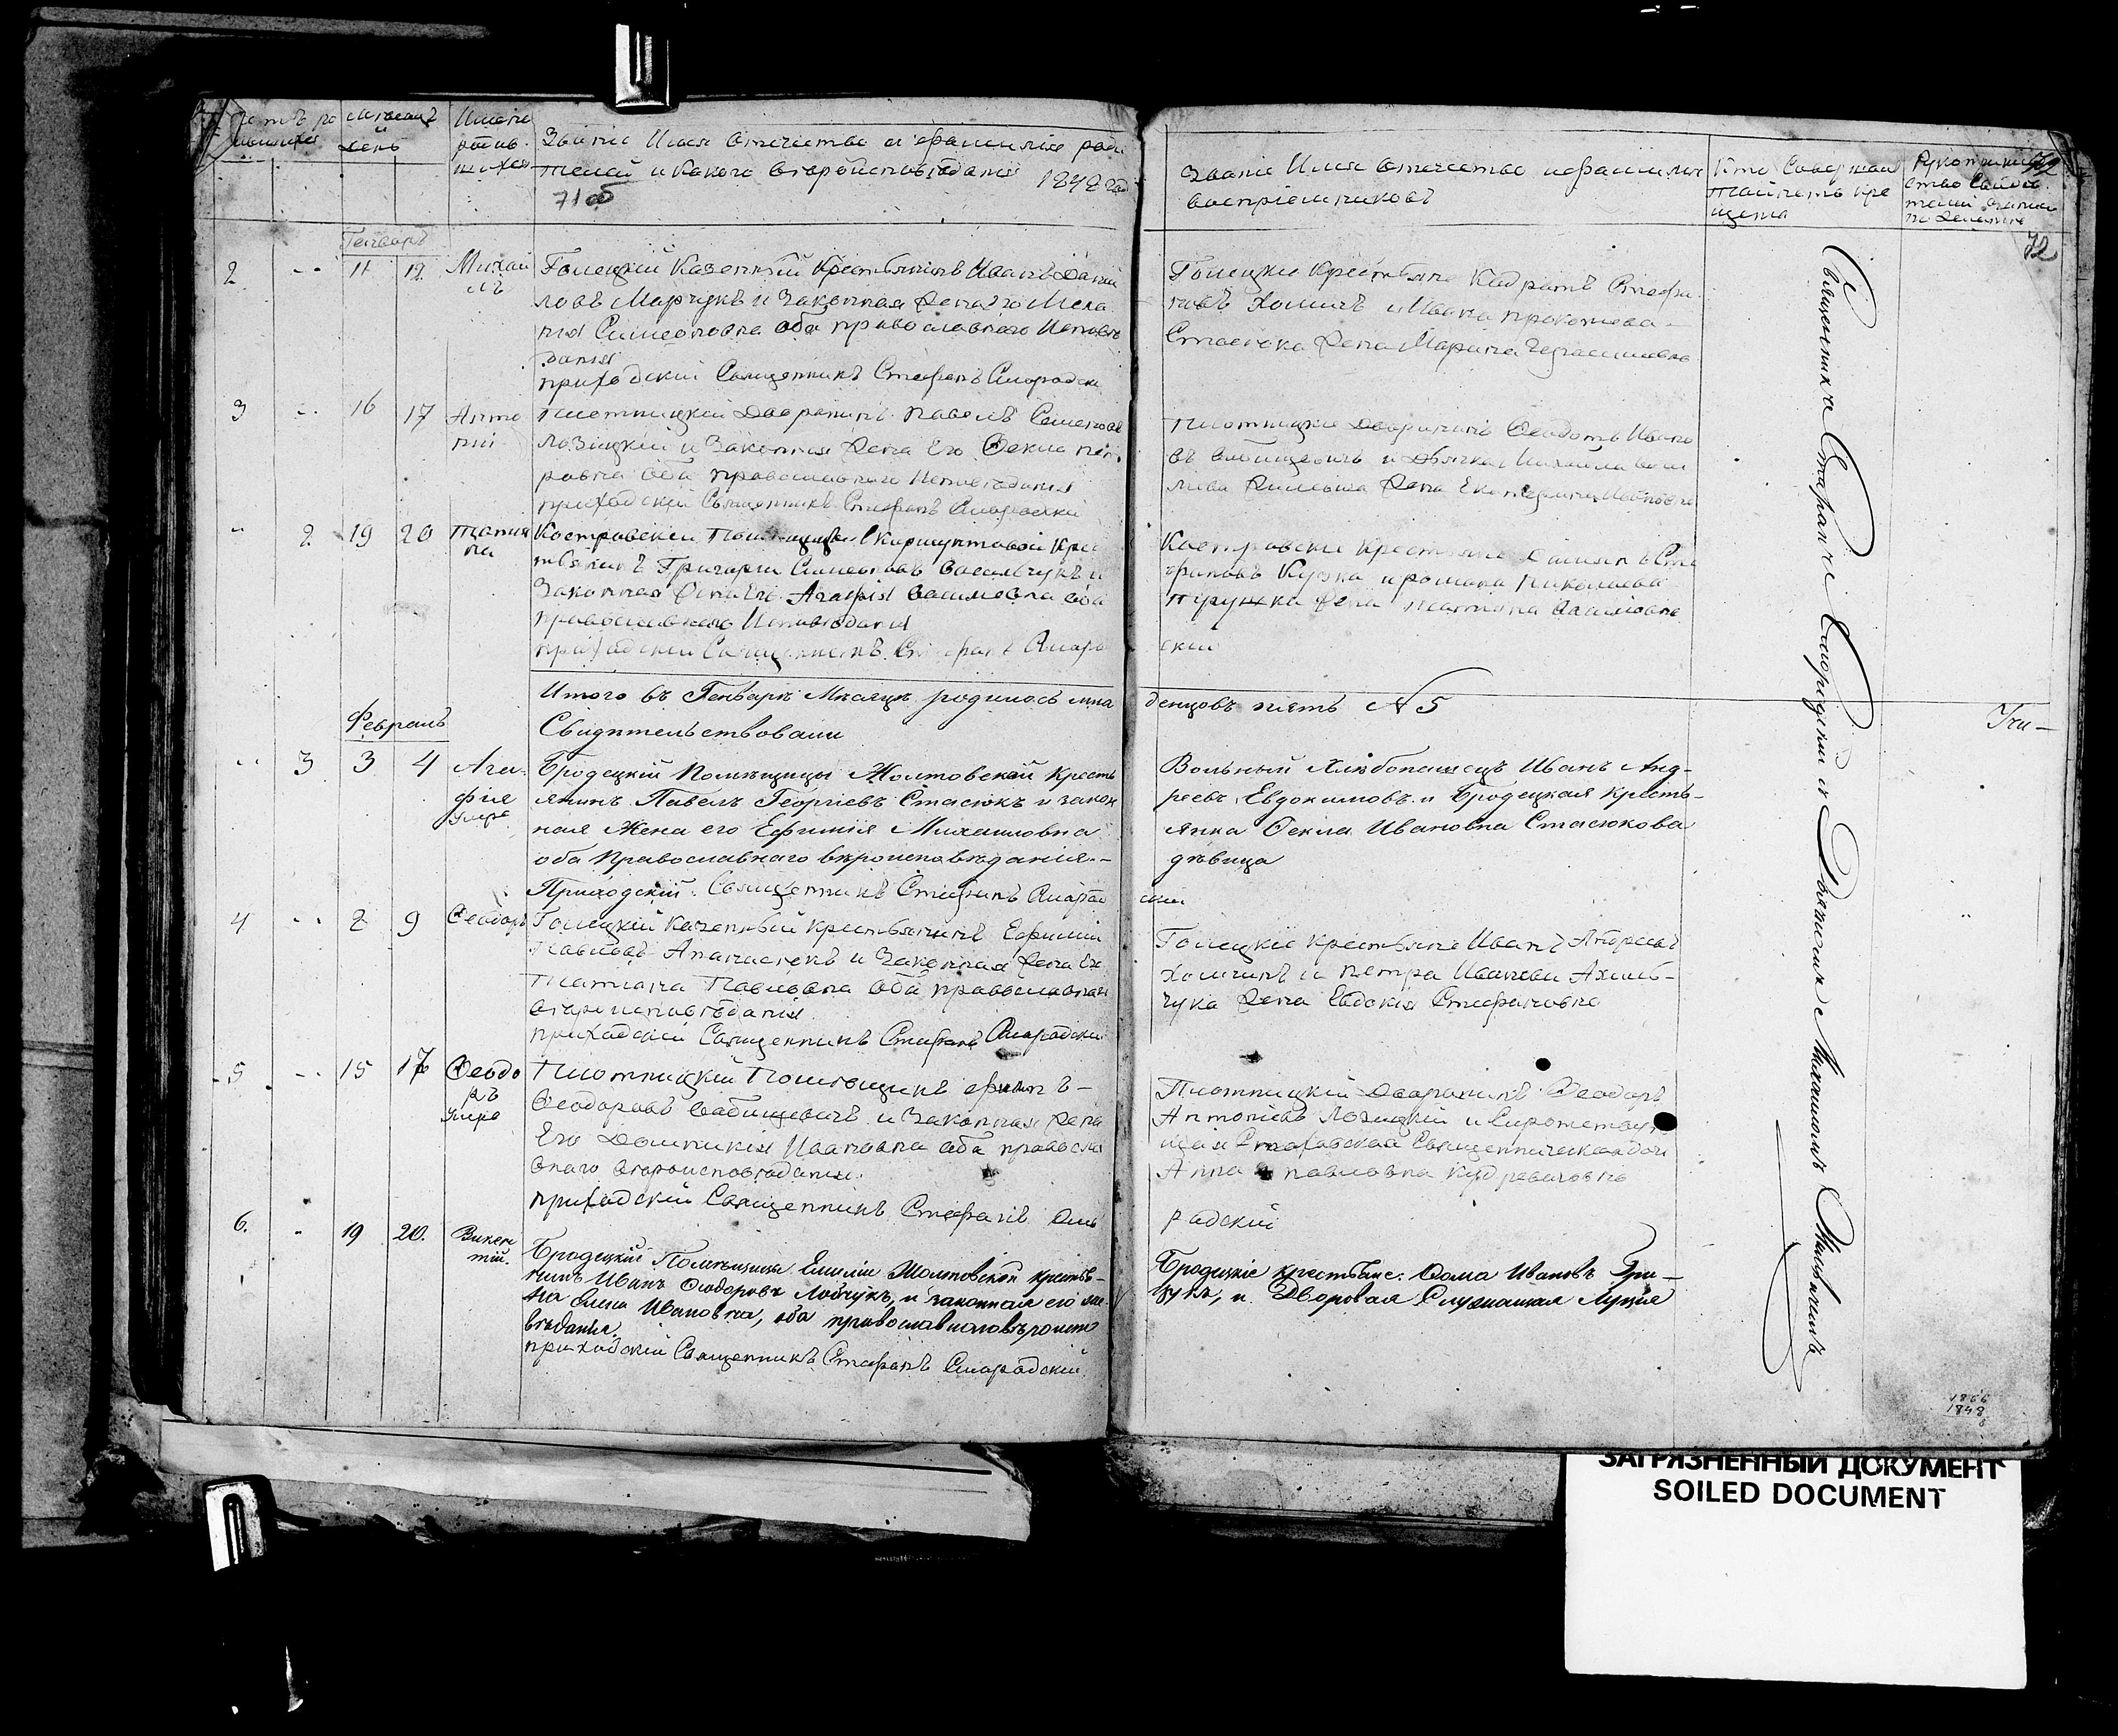 Имена
родив.
шихся
Званіе Имя Отчество и фамилія роди
телей и какого вѣроисповѣданія 1848 год
71об
Званіе Имя Отчество и фамилія
воспріемниковъ
Кто Совершал
таинство кре
щенія
72
72
Генварь
2 11 12 Михаи
лъ
Голецкій Казенный Крестьянинъ Иванъ Дани
ловъ Марчукъ и Законная Жена его Мела
нія Симеоновна оба православнаго Исповѣ
данія
приходскій Священникъ Стефанъ Смородски
Голецкіе Крестьяне Кодратъ Стефа
новъ Хомичъ и Ивана Прокопіева
Стасюка Жена Марина Герасимовна
3 16 17 Анто
ній
Плотницкій Дворянинъ Павелъ Семенов
Лозицкій и Законная Жена Его Фекла Пет
ровна Оба православнаго Исповѣданія
приходскій Священникъ Стефанъ Смородскій
Плотницкіе Дворянинъ Феодотъ Ивано
въ и Дьячка Михаила
Жена Екатерина Ивановна
2 19 20 Татия
на
Костровскій Помѣщицы Скирмунтовой Кре
стьянинъ Григорій Симеоновъ Васильчукъ и
Законная Жена Его Агафія Василевна оба
православнаго Исповѣданія
приходскій Священникъ Стефанъ Смаро
Костровски Крестьяне Даміянъ Сте
фановъ Кузка и романа Николаева
Жена Татиана Василовна
скій
Итого въ Генварѣ Мѣсяцѣ родилось мла
денцовъ пять N 5
Свидѣтельствовали
Февраль
3 3 4 Ага-
фія
Умре
Бродецкій Помѣщицы Жолтовской кресть
янинъ Павелъ Георгіевъ Стасюкъ и закон
ная Жена его Ефимія Михаиловна
оба Православнаго вѣроисповѣданія.-
Приходскій Священникъ Стефанъ Смород
Вольный Хлѣбопашецъ Иванъ Анд-
реевъ Евдокимовъ и Бродецкая кресть-
янка Фекла Ивановна Стасюкова
дѣвица
скій
4 8 9 Феодоръ
Голецкій Казенный Крестьянинъ Ефимій
Павловъ Апанасюкъ и Законная Жена Ег
Татиана Павловна Оба православнаго
вѣроисповѣданія
приходскій Священникъ Стефанъ Смородски
Голецкіе крестьяне Иванъ Андреевъ
Хомичъ и Петра Иванова
чука Жена Евдокія Стефановна
5 15 17 Феодо
ръ
Умре
Плотницкій Помѣщикъ
Феодоровъ и Законная Жена
Его Домникія Ивановна оба правосла
внаго вѣроисповѣданія.
приходскій Священникъ Стефанъ Смо
Плотницкій Дворянинъ Феодоръ
Антоніевъ Лозицкій и Сиротствую
щая Священническая доч
Анна Павловна
радскій
6. 19 20. Викен
тій.
Бродецкій Помѣщицы Емиліи Жолтовской крестья-
нинъ Иванъ Феодоровъ Лойчукъ, и законная его же-
на Елена Ивановна, оба православнаго вѣроиспо
вѣданія.
приходскій Священникъ Стефанъ Смородскій
Бродецкіе крестьяне: Фома Ивановъ Гри-
цукъ, и Дворовая Служащая Луція
Священника Стефанъ Смородскій съ Дьячкомъ Михаиломъ
1866
1848
ЗАГРЯЗНЕННЫЙ ДОКУМЕНТ
SOILED DOCUMENT